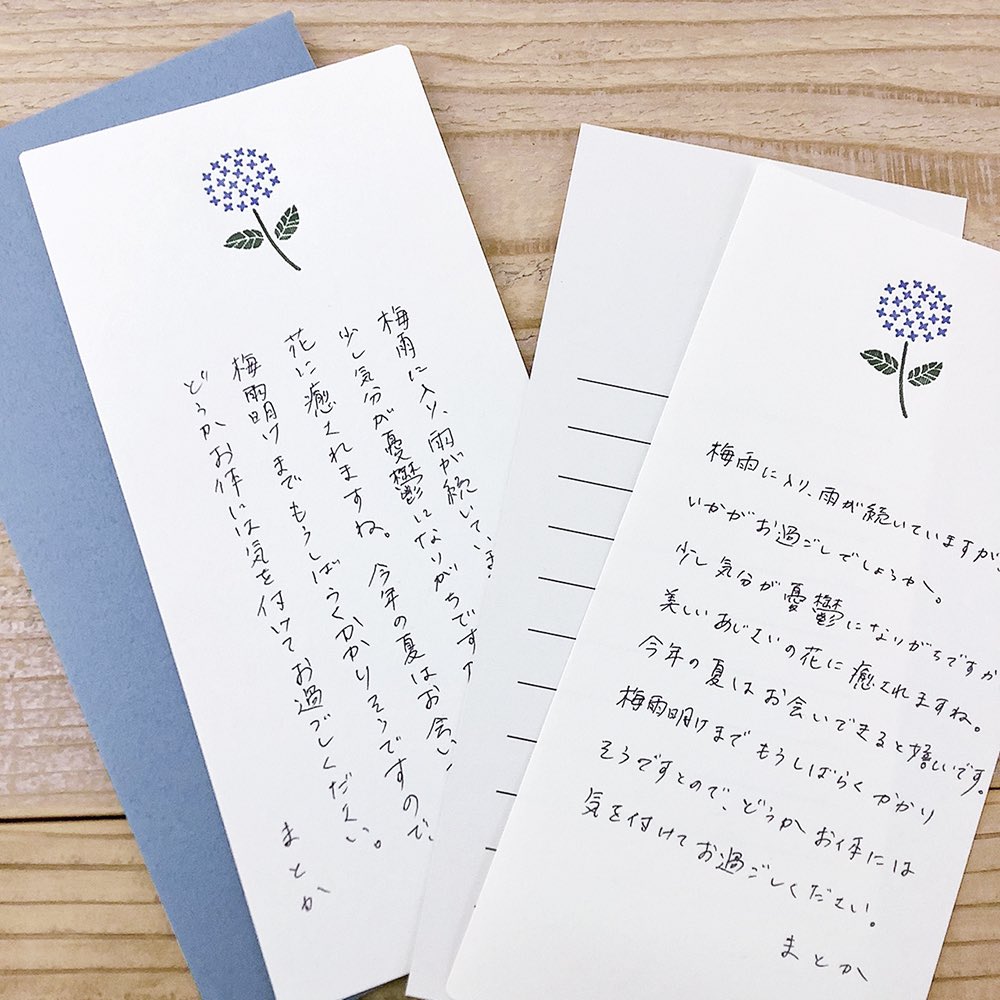 梅雨に入り、雨が続いていま
少し気分が憂鬱になりがちです
花に癒されますね。今年の夏はお会い
梅雨明けまでもうしばらくかかりそうですので、
どうかお体には気を付けてお過ごしください。
まどか
梅雨に入り、雨が続いていますが、
いかがお過ごしでしょうか。
少し気分が憂鬱になりがちですが
美しいあじさいの花に癒されますね。
今年の夏はお会いできると嬉しいです。
梅雨明けまでもうしばらくかかり
そうですとので、どうかお体には
気を付けてお過ごしください。
まどか